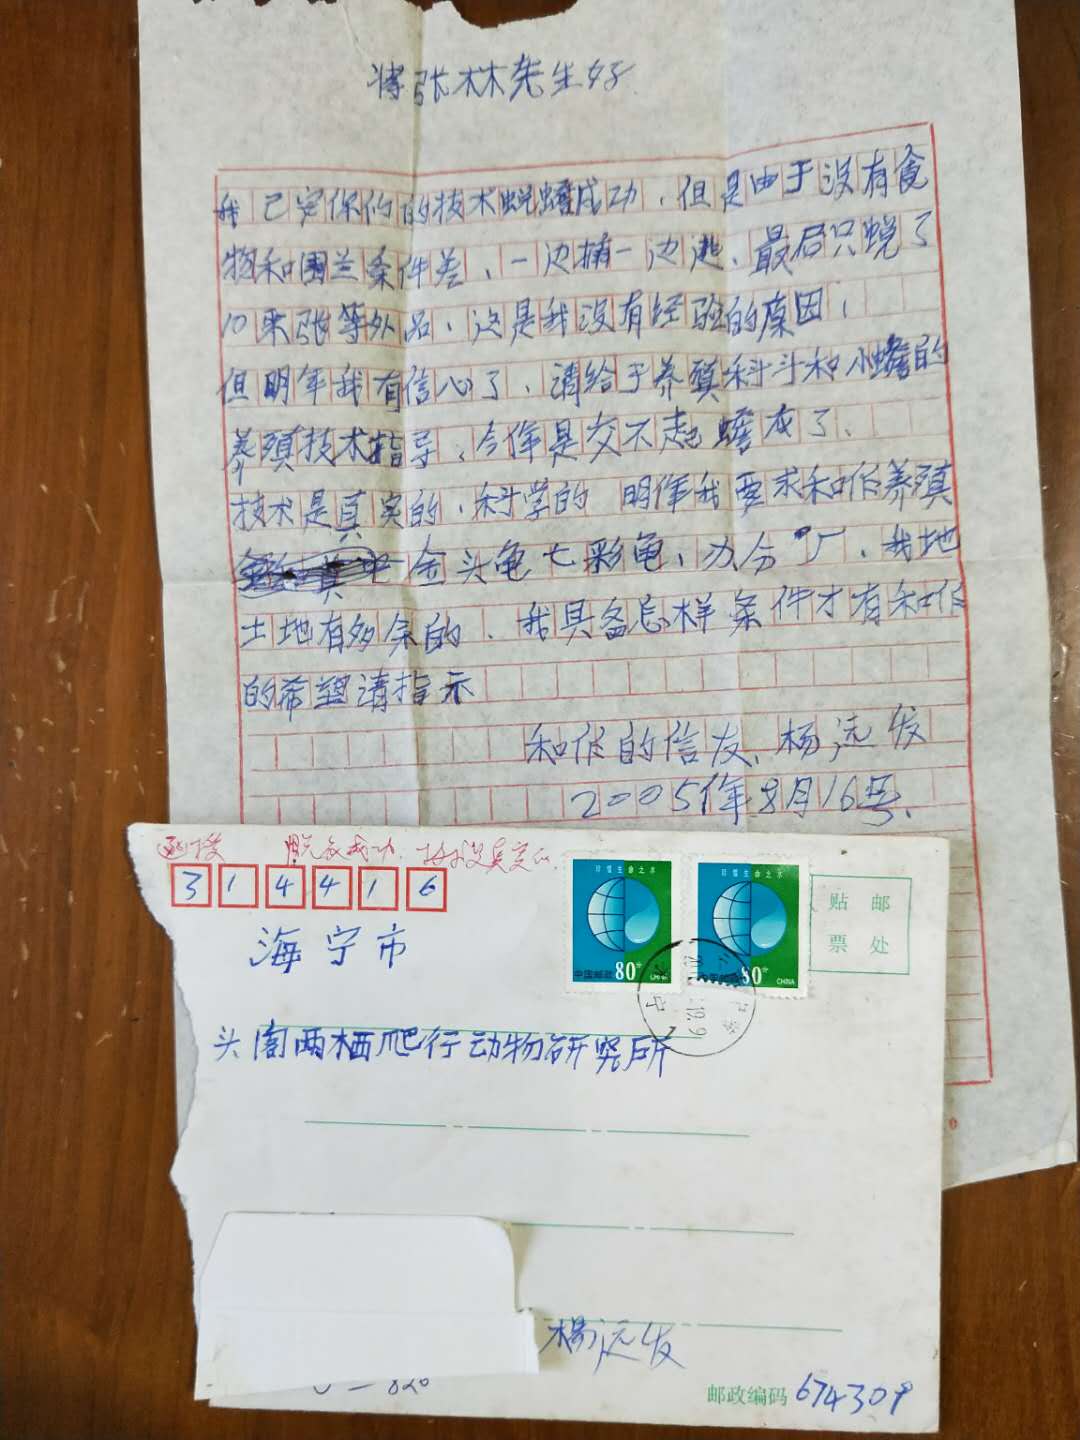 张林先生好
我已安你们的技术蜕蟾成功，但是由于没有食
物和围兰条件差、一边捕一边逃、最后只蜕了
10来张等外品，这是我没有经验的原因，
但明年我有信心了、请给于养殖科斗和小蟾的
养殖技术指导、今年是交不起蟾衣了、
技术是真实的，科学的 明年我要求和作养殖
金头龟七彩龟、办分厂，我地
土地有多余的、我具备怎样条件才有和作
的希望请指示
和作的信友、杨远发
2005年8月16号
脱衣成功
314416
海宁市
头阁两栖爬行动物研究所
珍惜生命之水
中国邮政 80分 CHINA
珍惜生命之水
80分 CHINA
贴邮
票处
杨远发
邮政编码 674309